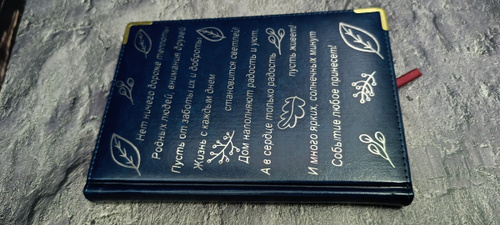 Нет ничего дороже теплоты
Родных людей, внимания друзей.
Пусть от заботы их и доброты
Жизнь с каждым днем
становится светлей!
Дом наполняют радость и уют,
А в сердце только радость
пусть живет!
И много ярких, солнечных минут
Событие любое принесет!